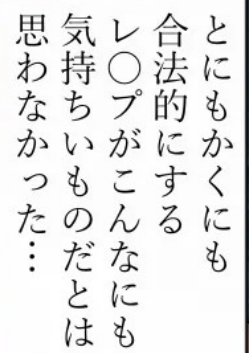 とにもかくにも
合法的にする
レ〇プがこんなにも
気持ちいいものだとは
思わなかった…